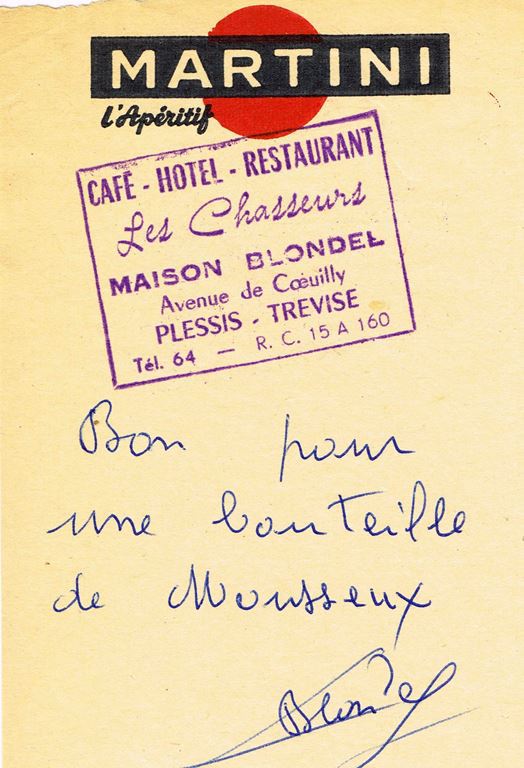 MARTINI
l'Apéritif
CAFÉ - HOTEL - RESTAURANT
Les Chasseurs
MAISON BLONDEL
Avenue de Cœuilly
PLESSIS - TREVISE
Tél. 64 — R. C. 15 A 160
Bon pour
une bouteille
de Mousseux
Blondel